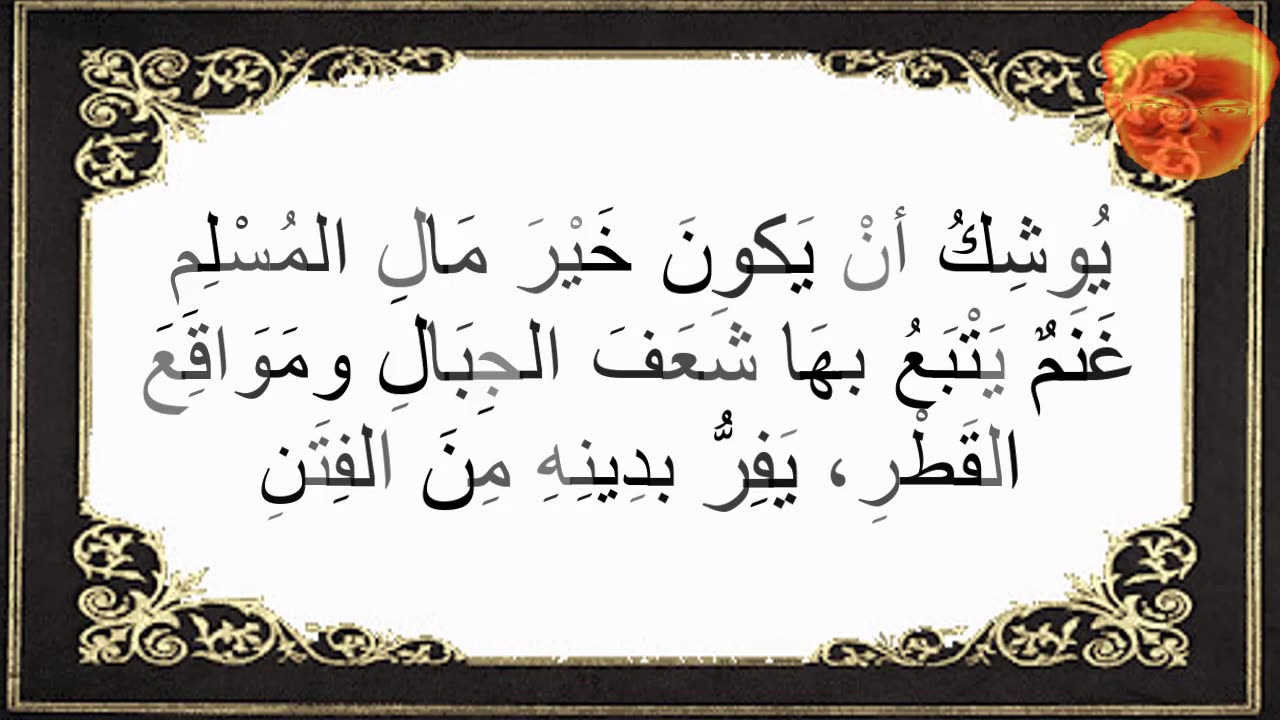 يُوشِكُ أنْ يَكونَ خَيْرَ مَالِ المُسْلِمِ
غَنَمٌ يَتْبَعُ بهَا شَعَفَ الجِبَالِ ومَوَاقِعَ
القَطْرِ، يَفِرُّ بدِينِهِ مِنَ الفِتَنِ